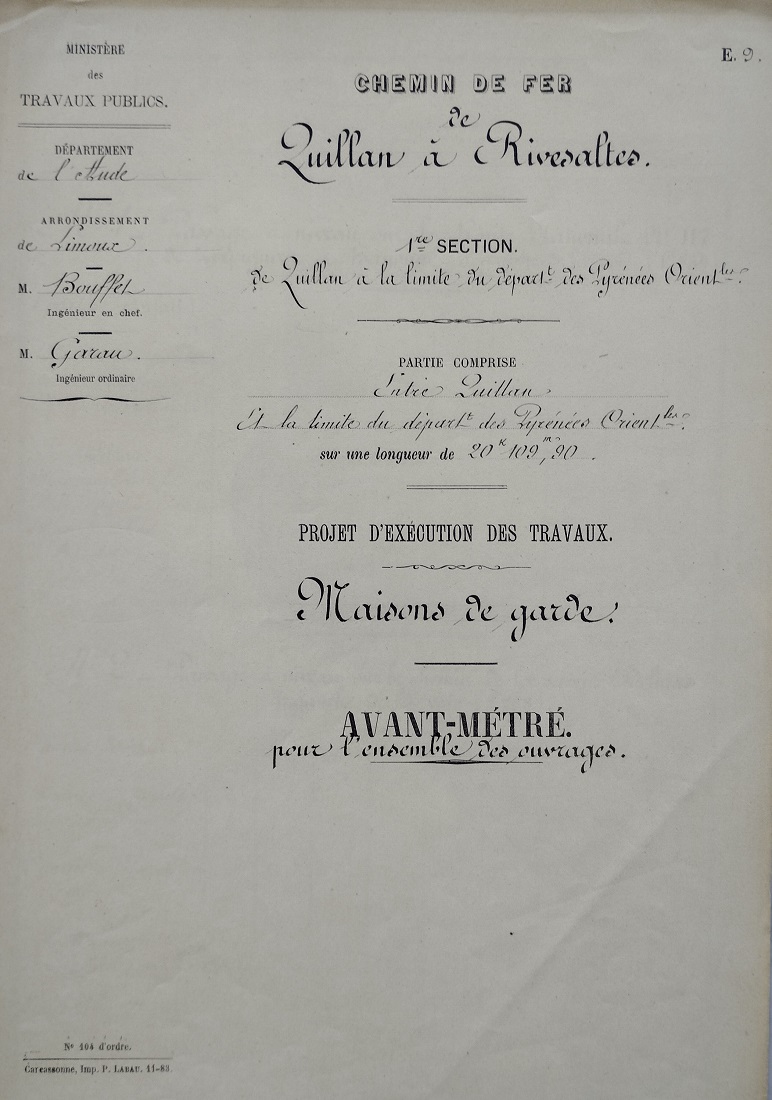 MINISTÈRE
des
TRAVAUX PUBLICS.
DÉPARTEMENT
de l'Aude
ARRONDISSEMENT
de Limoux.
M. Bouffet
Ingénieur en chef.
M. Garau.
Ingénieur ordinaire
E. 9.
CHEMIN DE FER
de
Quillan à Rivesaltes.
1re SECTION.
de Quillan à la limite du départt des Pyrénées Orientles.
PARTIE COMPRISE
Entre Quillan
Et la limite du départt des Pyrénées Orientles.
sur une longueur de 20k 109m,90.
PROJET D'EXÉCUTION DES TRAVAUX.
Maisons de garde.
AVANT-MÉTRÉ.
pour l'ensemble des ouvrages.
No 104 d'ordre.
Carcassonne, Imp. P. LABAU. 11-83.